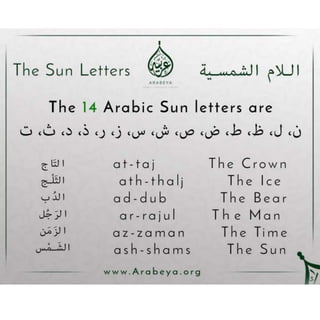 The Sun Letters
ARABEYA
اللام الشمسية
The 14 Arabic Sun letters are
ن، ل، ظ، ط، ض، ص، ش، س، ز، ر، ذ، د، ث، ت
التَّاج at-taj The Crown
الثَّلْج ath-thalj The Ice
الدُّب ad-dub The Bear
الرَّجُل ar-rajul The Man
الزَّمَن az-zaman The Time
الشَّمْس ash-shams The Sun
www.Arabeya.org